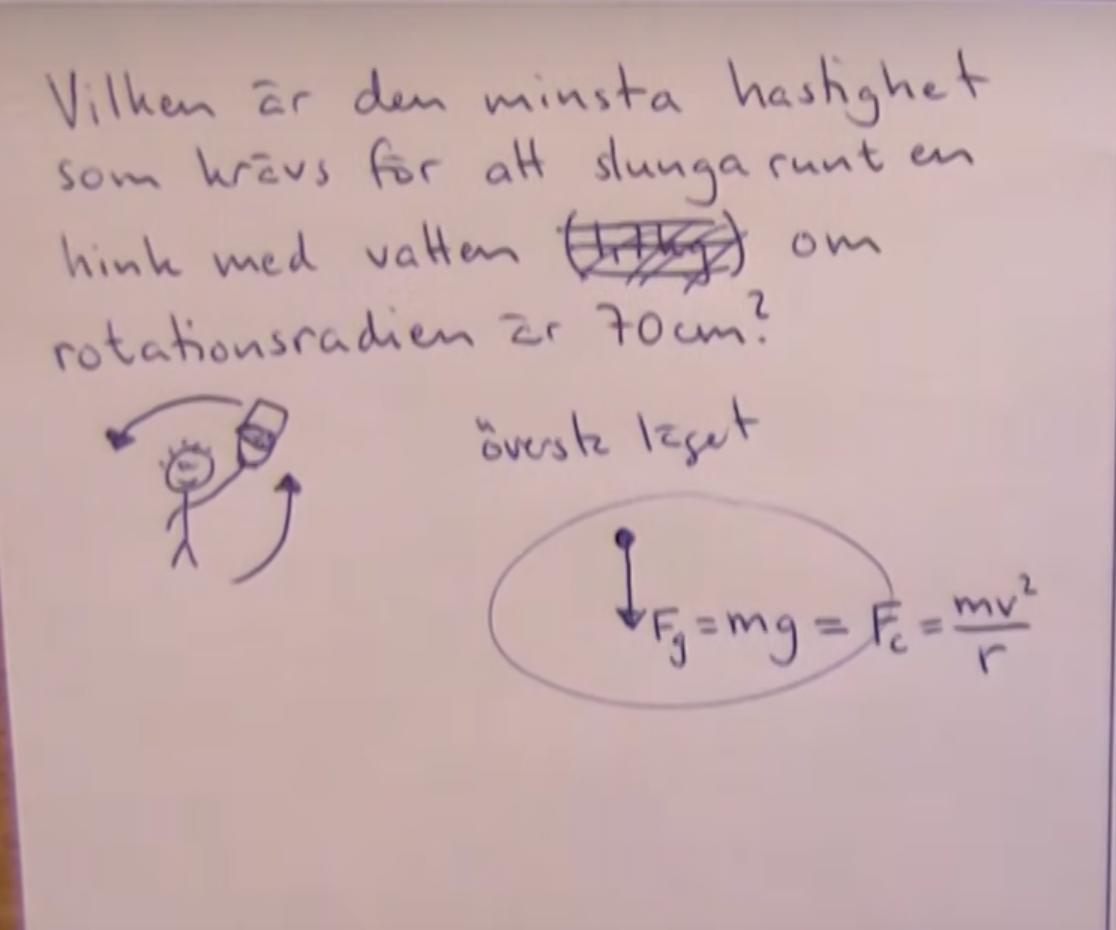 Vilken är den minsta hastighet
som krävs för att slunga runt en
hink med vatten om
rotationsradien är 70cm?
översta läget
F_g = mg = F_c = mv²/r